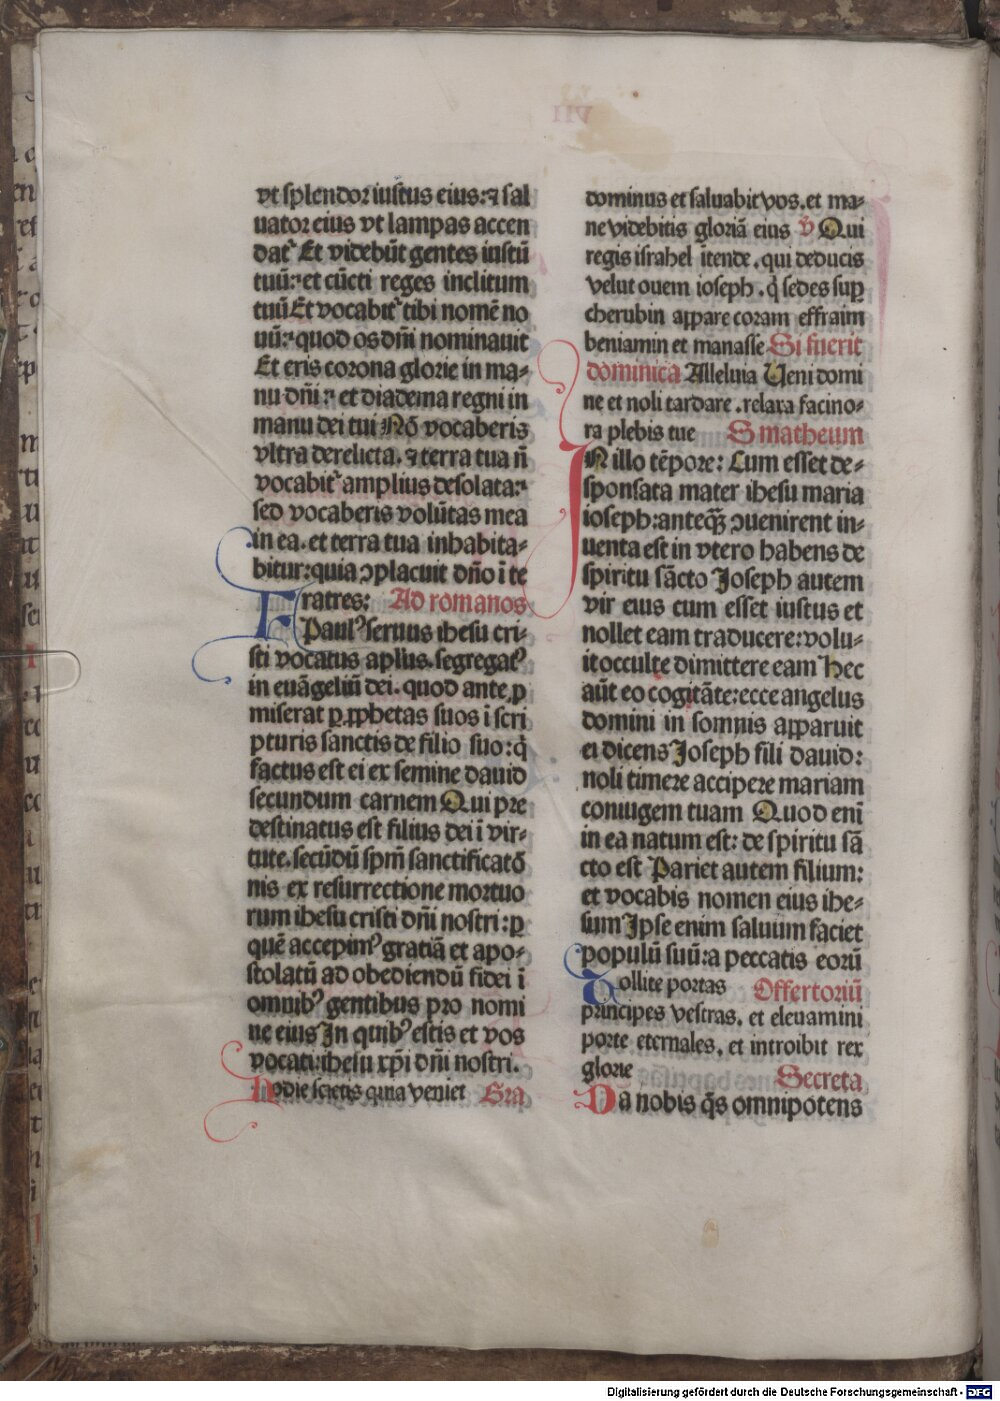 vt splendor iustus eius: ⁊ sal
uator eius vt lampas accen
datr̉ Et videbūt gentes iustū
tuū: et cūcti reges inclitum
tuū Et vocabitr̉ tibi nomē no
uū: quod os dn̄i nominauit
Et eris corona glorie in ma-
nu dn̄i: et diadema regni in
manu dei tui Nō vocaberis
vltra derelicta. ⁊ terra tua n̄
vocabitr̉ amplius desolata:
sed vocaberis volūtas mea
in ea. et terra tua inhabita-
bitur: quia ꝯplacuit dn̄o ī te
Fratres: Ad romanos
Paulꝰ seruus ihesu cri-
sti vocatus aplūs. segregatꝰ
in euāgeliū dei. quod ante ꝓ
miserat ꝑ ꝓphetas suos ī scri
pturis sanctis de filio suo: q̄
factus est ei ex semine dauid
secundum carnem Qui pre
destinatus est filius dei ī vir-
tute. secūdū sp̄m sanctificatō
nis ex resurrectione mortuo
rum ihesu cristi dn̄i nostri: ꝑ
quē accepimꝰ gratiā et apo-
stolatū ad obediendū fidei ī
omnibꝰ gentibus pro nomi
ne eius In quibꝰ estis et vos
vocati: ihesu xp̄i dn̄i nostri.
Hodie scietis quia veniet Gra
dominus et saluabit vos. et ma-
ne videbitis gloriā eius V̄ Qui
regis israhel itende. qui deducis
velut ouem ioseph. q̄ sedes suꝑ
cherubin appare coram effraim
beniamin et manasse Si fuerit
dominica Alleluia Ueni domi
ne et noli tardare. relaxa facino-
ra plebis tue S matheum
IN illo tēpore: Cum esset de-
sponsata mater ihesu maria
ioseph: anteqꝫ ꝯuenirent in-
uenta est in vtero habens de
spiritu sācto Joseph autem
vir eius cum esset iustus et
nollet eam traducere: volu-
it occulte dimittere eam Hec
aūt eo cogitāte: ecce angelus
domini in somnis apparuit
ei dicens Joseph fili dauid:
noli timere accipere mariam
coniugem tuam Quod enī
in ea natum est: de spiritu sā
cto est Pariet autem filium:
et vocabis nomen eius ihe-
sum Ipse enim saluum faciet
populū suū: a peccatis eorū
Tollite portas Offertoriū
principes vestras. et eleuamini
porte eternales. et introibit rex
glorie Secreta
Da nobis q̄s omnipotens
Digitalisierung gefördert durch die Deutsche Forschungsgemeinschaft - DFG